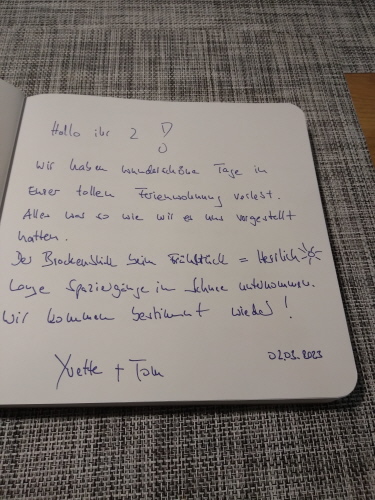 Hallo ihr 2 !
Wir haben wunderschöne Tage in
Eurer tollen Ferienwohnung verlebt.
Alles war so wie wir es uns vorgestellt
hatten.
Der Brockenblick beim Frühstück = Herrlich
Lange Spaziergänge im Schnee unternommen.
Wir kommen bestimmt wieder !
Yvette + Tom
02.03.2023